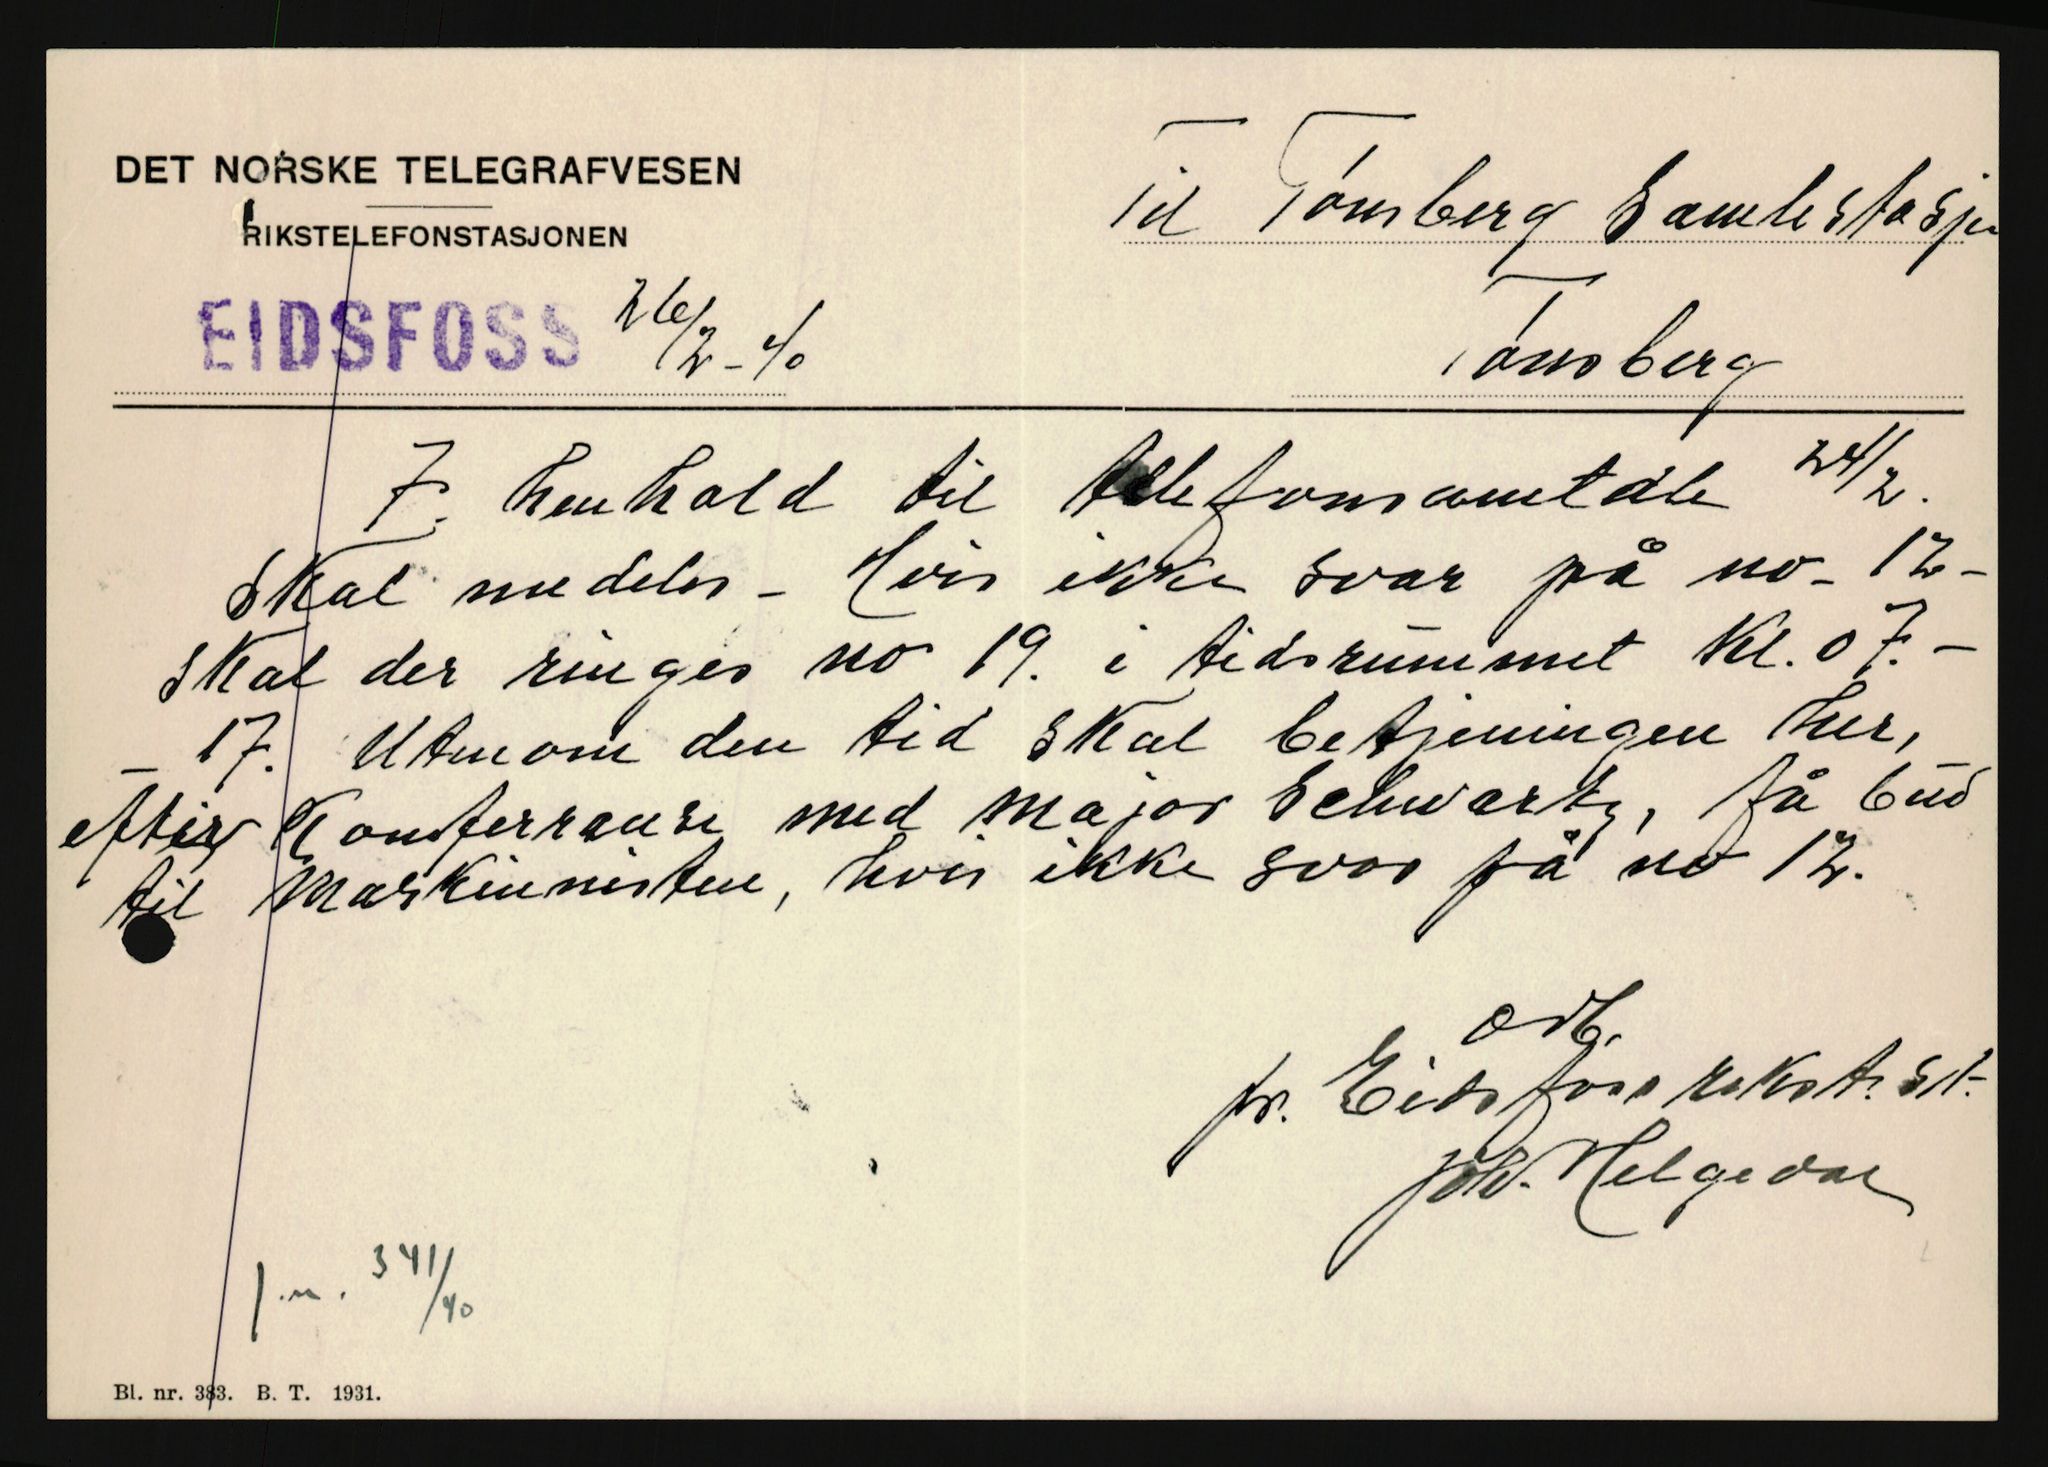 DET NORSKE TELEGRAFVESEN
RIKSTELEFONSTASJONEN
EIDSFOSS 26/2-40
Til Tønsberg Samlestasjon
Tønsberg
I. henhold til telefonsamtale 24/2.
skal meddeles - Hvis ikke svar på no - 12 -
skal der ringes no 19. i tidsrummet kl. 07. -
- 17. Utenom den tid skal betjeningen her,
efter Konferranse med major Schwartz, få bud
til Maskinnisten, hvis ikke svar på no 12.
Ærb.
pr. Eidsfoss rikst. st.
Joh. Helgedal
J.n. 341/40
Bl. nr. 383. B. T. 1931.